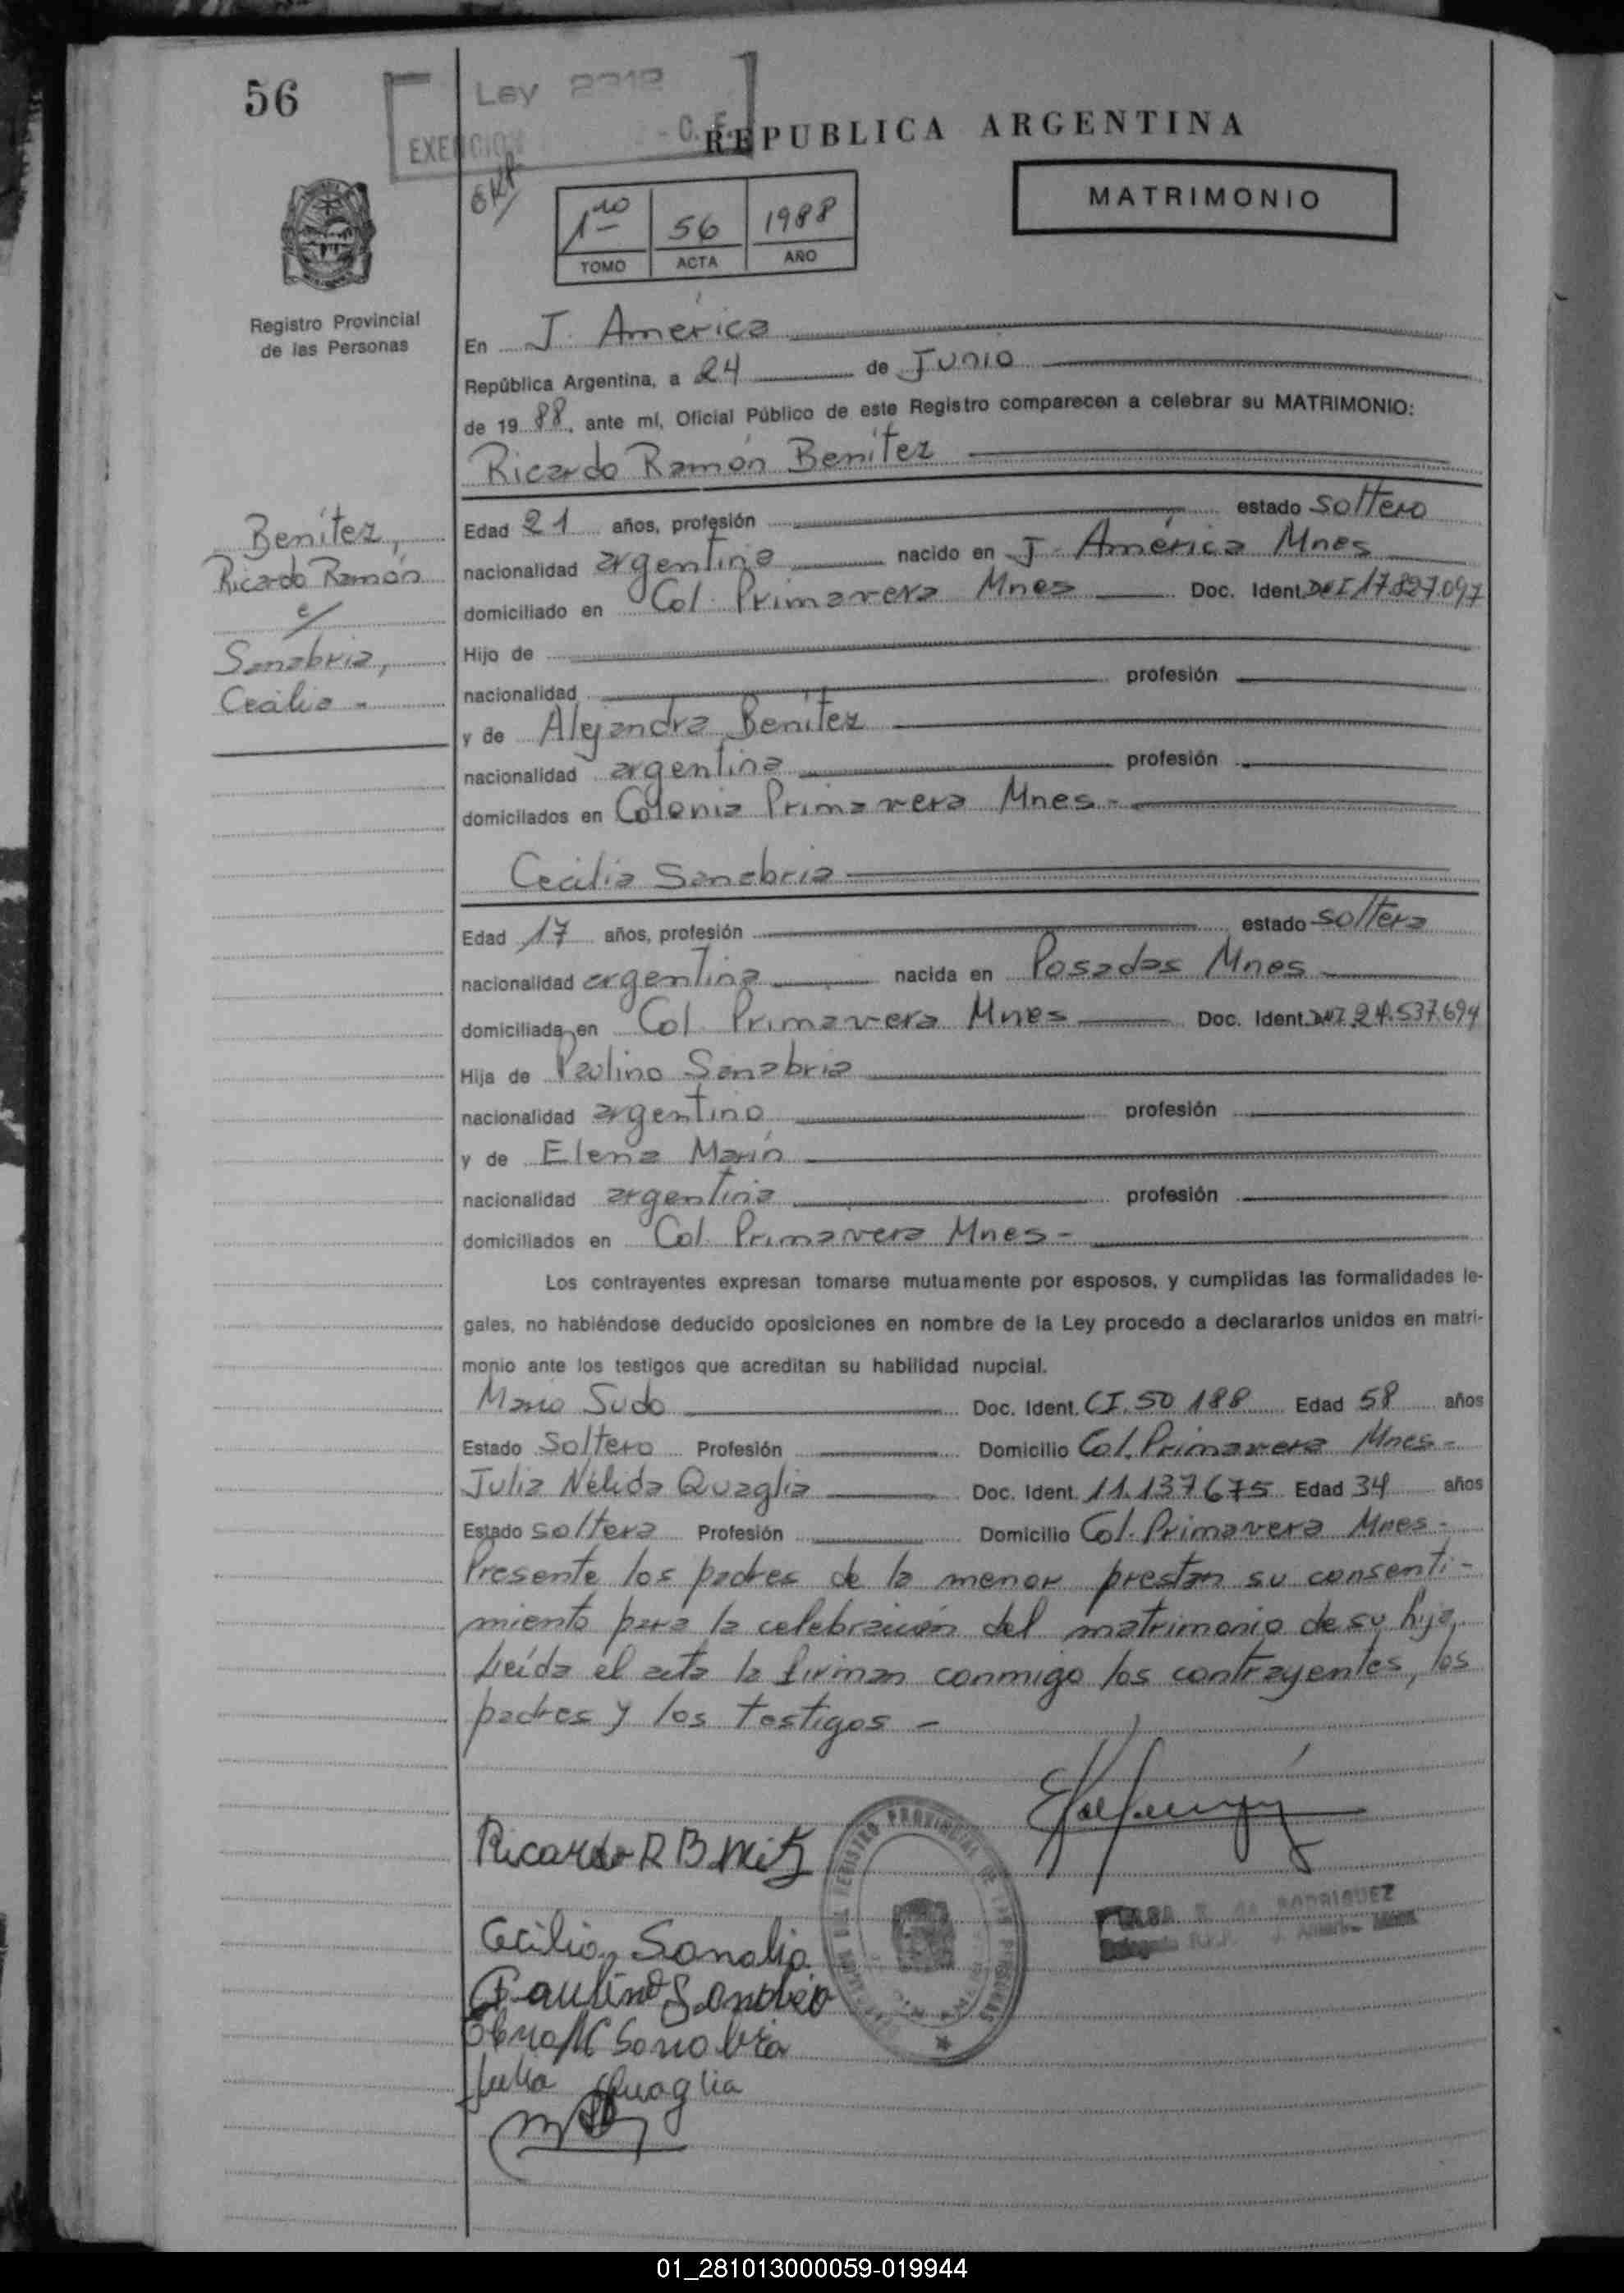 56
Ley 2312
EXENCION
REPUBLICA ARGENTINA
MATRIMONIO
1ro 56 1988
TOMO ACTA AÑO
Registro Provincial
de las Personas
En J. América
República Argentina, a 24 de Junio
de 1988, ante mí, Oficial Público de este Registro comparecen a celebrar su MATRIMONIO:
Ricardo Ramón Benítez
Benítez,
Ricardo Ramón
c/
Sanabria,
Cecilia -
Edad 21 años, profesión estado soltero
nacionalidad argentina nacido en J. América Mnes
domiciliado en Col. Primavera Mnes Doc. Ident. DNI 17.827.097
Hijo de
nacionalidad profesión
y de Alejandra Benítez
nacionalidad argentina profesión
domiciliados en Colonia Primavera Mnes -
Cecilia Sanabria
Edad 17 años, profesión estado soltera
nacionalidad argentina nacida en Posadas Mnes
domiciliada en Col. Primavera Mnes Doc. Ident. DNI 24.537.694
Hija de Paulino Sanabria
nacionalidad argentino profesión
y de Elena Marín
nacionalidad argentina profesión
domiciliados en Col. Primavera Mnes -
Los contrayentes expresan tomarse mutuamente por esposos, y cumplidas las formalidades le-
gales, no habiéndose deducido oposiciones en nombre de la Ley procedo a declararlos unidos en matri-
monio ante los testigos que acreditan su habilidad nupcial.
Mario Sudo Doc. Ident. CI. 50 188 Edad 58 años
Estado Soltero Profesión Domicilio Col. Primavera Mnes -
Julia Nélida Quaglia Doc. Ident. 11.137.675 Edad 34 años
Estado soltera Profesión Domicilio Col. Primavera Mnes -
Presente los padres de la menor prestan su consenti-
miento para la celebración del matrimonio de su hija,
Leída el acta la firman conmigo los contrayentes, los
padres y los testigos -
Ricardo R B
REGISTRO PROVINCIAL DE LAS PERSONAS
DE RODRIGUEZ
Cecilia
Paulino
Julia Quaglia
01_281013000059-019944